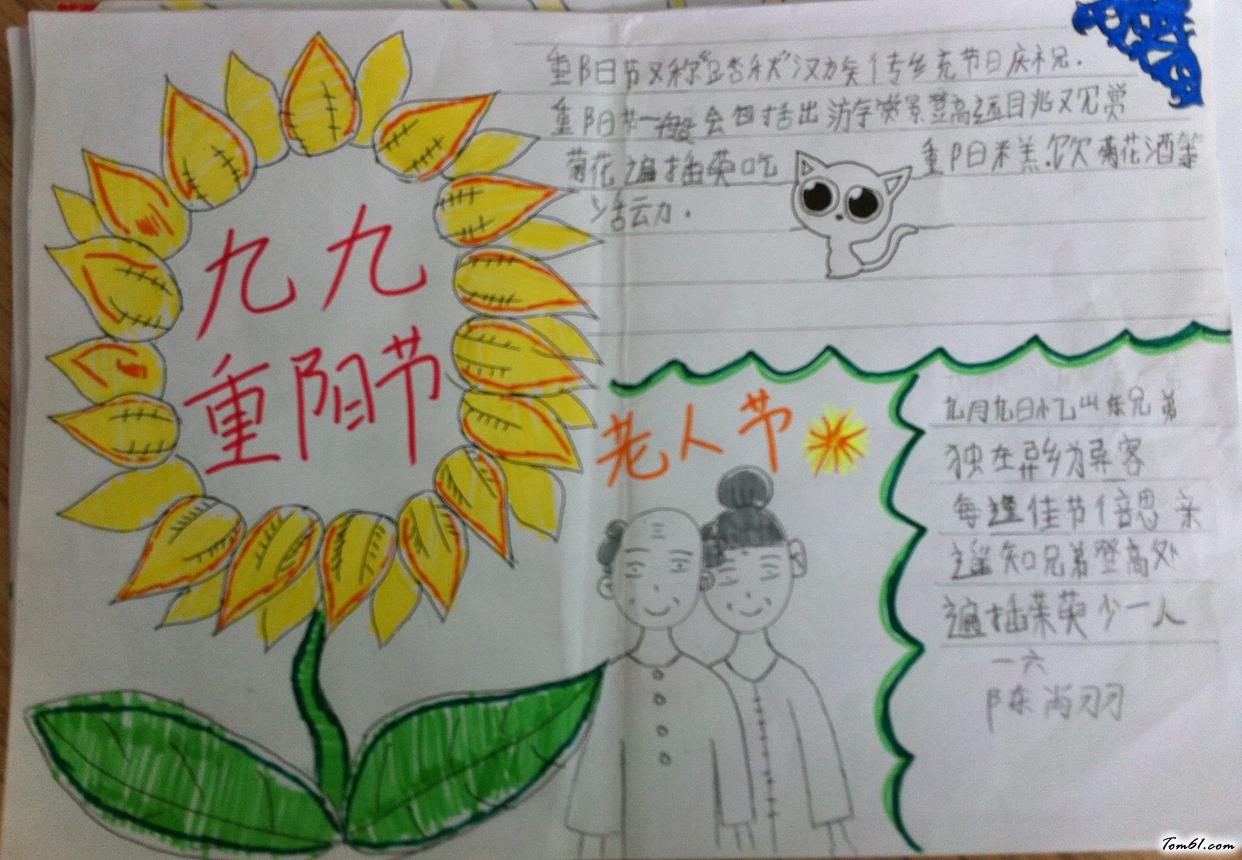 九九
重阳节
重阳节又称“踏秋”汉族传统节日庆祝.
重阳节一般会包括出游字赏景登高远目兆又见赏
菊花遍插茱萸吃 重阳米羔.饮菊花酒等
活云力.
老人节
九月九日忆山东兄弟
独在异乡为异客
每逢佳节倍思亲
遥知兄弟登高处
遍插茱萸少一人
一六
陈尚羽
Tom61.com